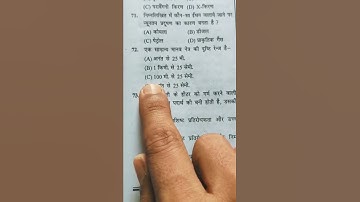 (C) पराबैंगनी किरण (D) X-किरण
71. निम्नलिखित में कौन-सा ईंधन जलाये जाने पर
न्यूनतम प्रदूषण का कारण बनता है ?
(A) कोयला (B) डीजल
(C) पेट्रोल (D) प्राकृतिक गैस
72. एक सामान्य मानव नेत्र की दृष्टि रेन्ज है–
(A) अनंत से 25 मी.
(B) 1 किमी. से 25 सेमी.
(C) 100 मी. से 25 सेमी.
से 25 सेमी.
73. के हीटर को गर्म करने वाली
पदार्थ की बनी होती है, उसकी
प्रतिरोधकता और उच्च